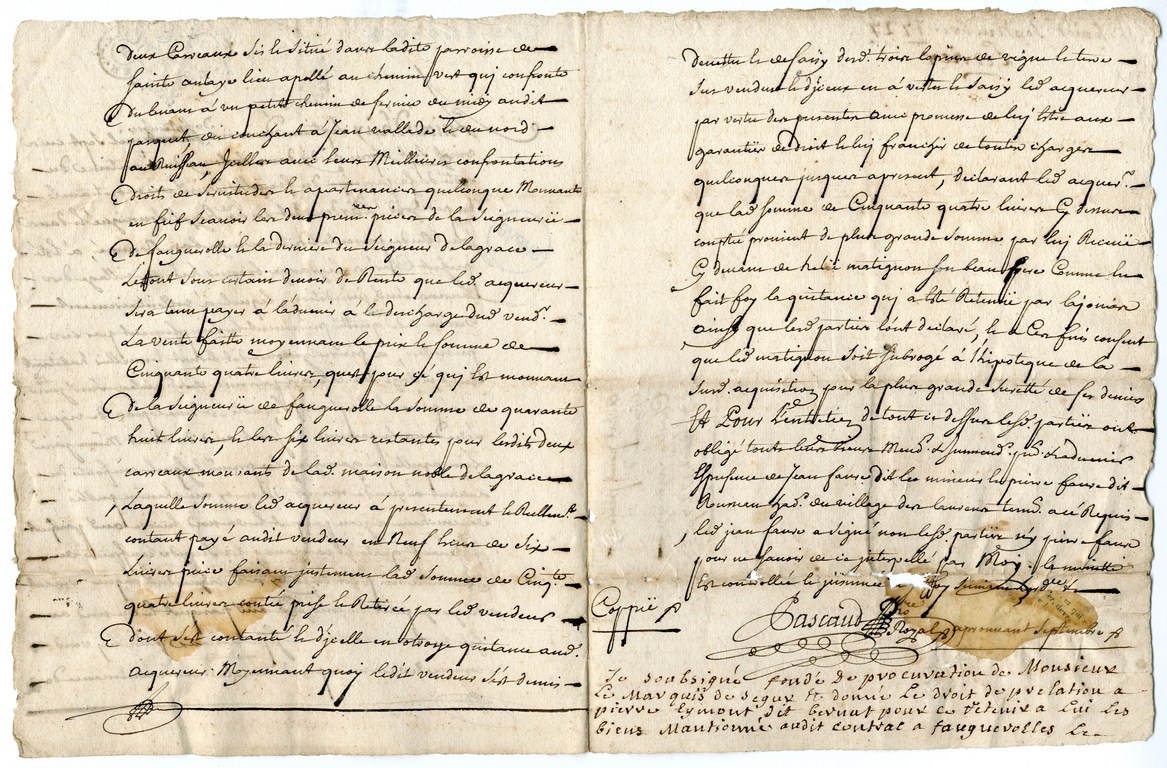 deux Carreaux Sis et Situé dans ladite parroisse de
Sainte aulaye lieu apellé au chemin vert qui confronte
du levant à un petit chemin de service du midy audit
jarquet, du couchant à Jean vallade et du nord
au Ruisseau, Jcelles avec leurs Meilleures confrontations
droits de servitudes et apartenances quelconque Mouvants
en fief scavoir les deux prem.res pièces de la Seigneurie
de fauguerolle et la derniere du Seigneur de lagrace
Le tout sous certain devoir de Rente que led. acquereur
sera tenu payer à ladvenir à la descharge dud. vend.r
La vente faitte moyennant le prix et somme de
Cinquante quatre livres, quest pour ce qui Est mouvant
de la Seigneurie de fauguerolle la somme de quarante
huit livres, et les six livres restantes pour lesdits deux
carreaux mouvants de lad. maison noble de lagrace
Laquelle somme led. acquereur à presentement et Reellem.t
contant payé audit vendeur en Neuf heus de six
Livres piece faisant justement lad. Somme de Cinq.te
quatre livres contée prise et Retirée par led. vendeur
dont s'est contanté et djcelle en otroye quitance aud.
acquereur Moyennant quoy ledit vendeur s'est demis
demettu et desaisy desd. trois lopins de vigne et terre
Sus vendus et djceux en à vettu et saisy led. acquereur
par vertu des presentes avec promesse de luy Estre aux
garanties de droit et luy franchir de toutes charges
quelconques jusques apresent, declarant led. acquer.r
que lad. somme de Cinquante quatre livres Cy dessus
contée provient de plus grande Somme par luy Recüe
Cy devant de helie matignon son beau frere Comme en
fait foy la quitance qui a Esté Retenüe par lajonier
ainsy que lesd. parties l'ont declaré, et a Ces fins consent
que led. matignon soit subrogé à l'hipoteque de la
susd. acquisition pour la plus grande Suretté de ses deniers
Et Pour L'entretien de tout ce dessus lesd. parties ont
obligé touts leurs biens Meub. & Jmmeub. pnt. & advenirs
En presence de Jean faure dit les mineurs et pierre faure dit
hab. du village des laurens temoi. a ce Requis
led. jean faure a signé non lesd. parties ny pierre faure
pour ne sçavoir de ce interpellé par Moy. la minutte
Est controllée
Coppie
Pascaud Nre Royal aprouvant septembre
Je soubsigné fondé de procuration de Monsieur
Le Marquis de segur Et donne Le droit de prelation a
pierre Eymont dit bernut pour ce retenir a Lui Les
biens Mantionné audit contrat a fauguerolles Le